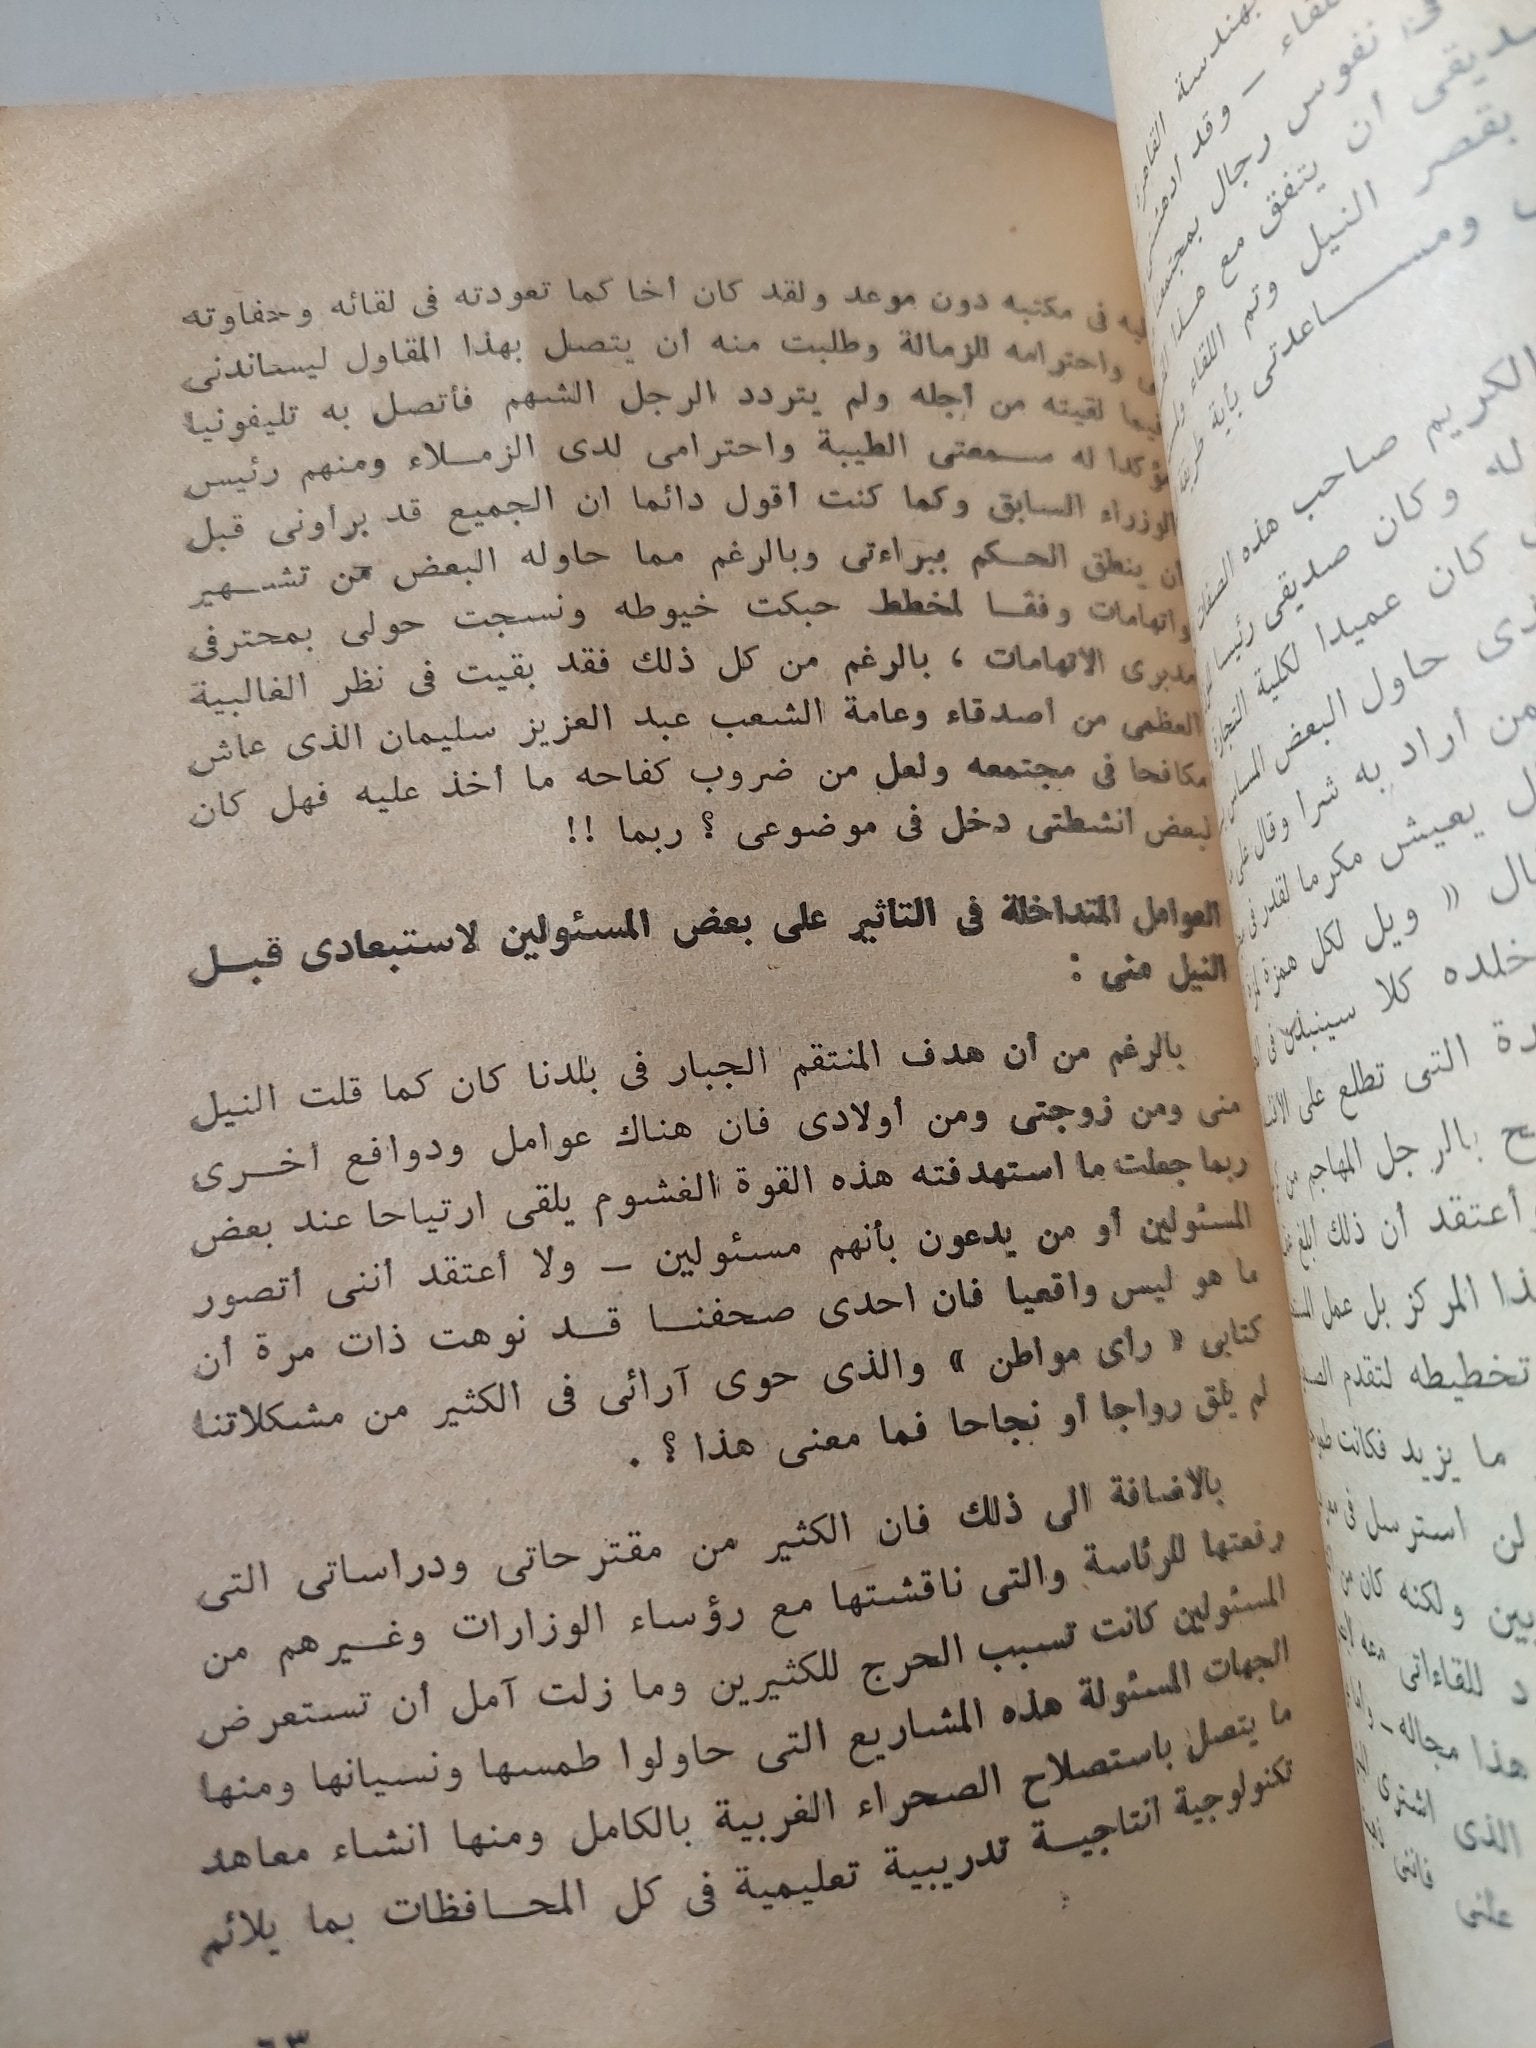 فى مكتبه دون موعد ولقد كان أخا كما تعودته فى لقائه وحفاوته
واحترامه للزمالة وطلبت منه أن يتصل بهذا المقاول ليساندنى
فيما لقيته من أجله ولم يتردد الرجل الشهم فأتصل به تليفونيا
مؤكدا له سمعتى الطيبة واحترامى لدى الزملاء ومنهم رئيس
الوزراء السابق وكما كنت أقول دائما ان الجميع قد برأونى قبل
ان ينطق الحكم ببراءتى وبالرغم مما حاوله البعض من تشهير
واتهامات وفقا لمخطط حبكت خيوطه ونسجت حولى بمحترفى
مدبرى الاتهامات ، بالرغم من كل ذلك فقد بقيت فى نظر الغالبية
العظمى من أصدقاء وعامة الشعب عبد العزيز سليمان الذى عاش
مكافحا فى مجتمعه ولعل من ضروب كفاحه ما أخذ عليه فهل كان
لبعض انشطتى دخل فى موضوعى ؟ ربما !!
العوامل المتداخلة فى التأثير على بعض المسئولين لاستبعادى قبل
النيل منى :
بالرغم من أن هدف المنتقم الجبار فى بلدنا كان كما قلت النيل
منى ومن زوجتى ومن أولادى فان هناك عوامل ودوافع أخرى
ربما جعلت ما استهدفته هذه القوة الغشوم يلقى ارتياحا عند بعض
المسئولين أو من يدعون بأنهم مسئولين – ولا أعتقد أننى أتصور
ما هو ليس واقعيا فان احدى صحفنا قد نوهت ذات مرة أن
كتابى « رأى مواطن » والذى حوى آرائى فى الكثير من مشكلاتنا
لم يلق رواجا أو نجاحا فما معنى هذا ؟ .
بالاضافة الى ذلك فان الكثير من مقترحاتى ودراساتى التى
رفعتها للرئاسة والتى ناقشتها مع رؤساء الوزارات وغيرهم من
المسئولين كانت تسبب الحرج للكثيرين وما زلت آمل أن تستعرض
الجهات المسئولة هذه المشاريع التى حاولوا طمسها ونسيانها ومنها
ما يتصل باستصلاح الصحراء الغربية بالكامل ومنها انشاء معاهد
تكنولوجية انتاجية تدريبية تعليمية فى كل المحافظات بما يلائم
بهندسة
وقد
نفوس رجال
أن يتفق مع هذا
بقصر النيل وتم اللقاء
ومساعدتى بأية
الكريم صاحب هذه
له وكان صديقى
كان عميدا لكلية
حاول البعض
من أراد به شرا وقال
يعيش مكرما
« ويل لكل همزة
كلا
التى تطلع على
بالرجل المهاجم من
أعتقد أن ذلك أبلغ
المركز بل عمل
تخطيطه لتقدم
ما يزيد فكانت
لن استرسل فى
ولكنه كان من
للقاءاتى
هذا مجاله
الذى اشترى